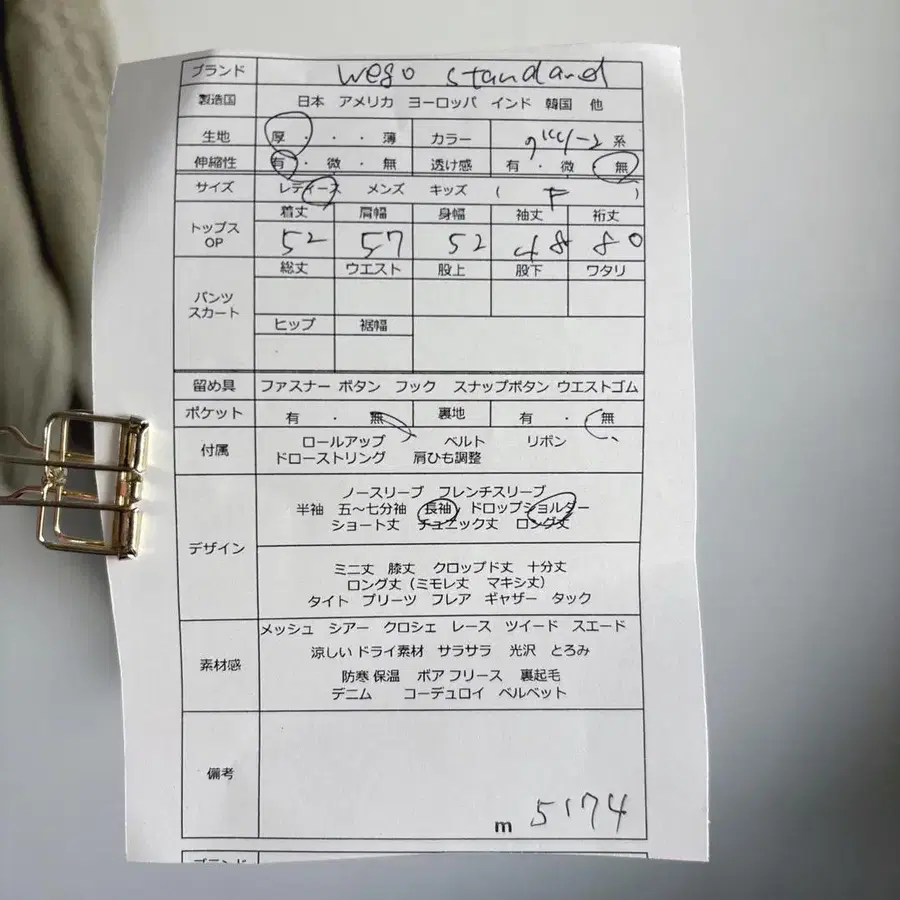 ブランド wego standard
製造国 日本 アメリカ ヨーロッパ インド 韓国 他
生地 厚 ・ ・ ・ 薄 カラー グリーン 系
伸縮性 有 ・ 微 ・ 無 透け感 有 ・ 微 無
サイズ レディース メンズ キッズ ( F )
着丈 肩幅 身幅 袖丈 裄丈
トップス OP
52 57 52 48 80
総丈 ウエスト 股上 股下 ワタリ
パンツ
スカート
ヒップ 裾幅
留め具 ファスナー ボタン フック スナップボタン ウエストゴム
ポケット 有 ・ 無 裏地 有 ・ 無
付属 ロールアップ ベルト リボン
ドローストリング 肩ひも調整
ノースリーブ フレンチスリーブ
半袖 五～七分袖 長袖 ドロップショルダー
ショート丈 チュニック丈 ロング丈
デザイン
ミニ丈 膝丈 クロップド丈 十分丈
ロング丈（ミモレ丈 マキシ丈）
タイト プリーツ フレア ギャザー タック
メッシュ シアー クロシェ レース ツイード スエード
涼しい ドライ素材 サラサラ 光沢 とろみ
素材感
防寒 保温 ボア フリース 裏起毛
デニム コーデュロイ ベルベット
備考
m 5174
ブランド